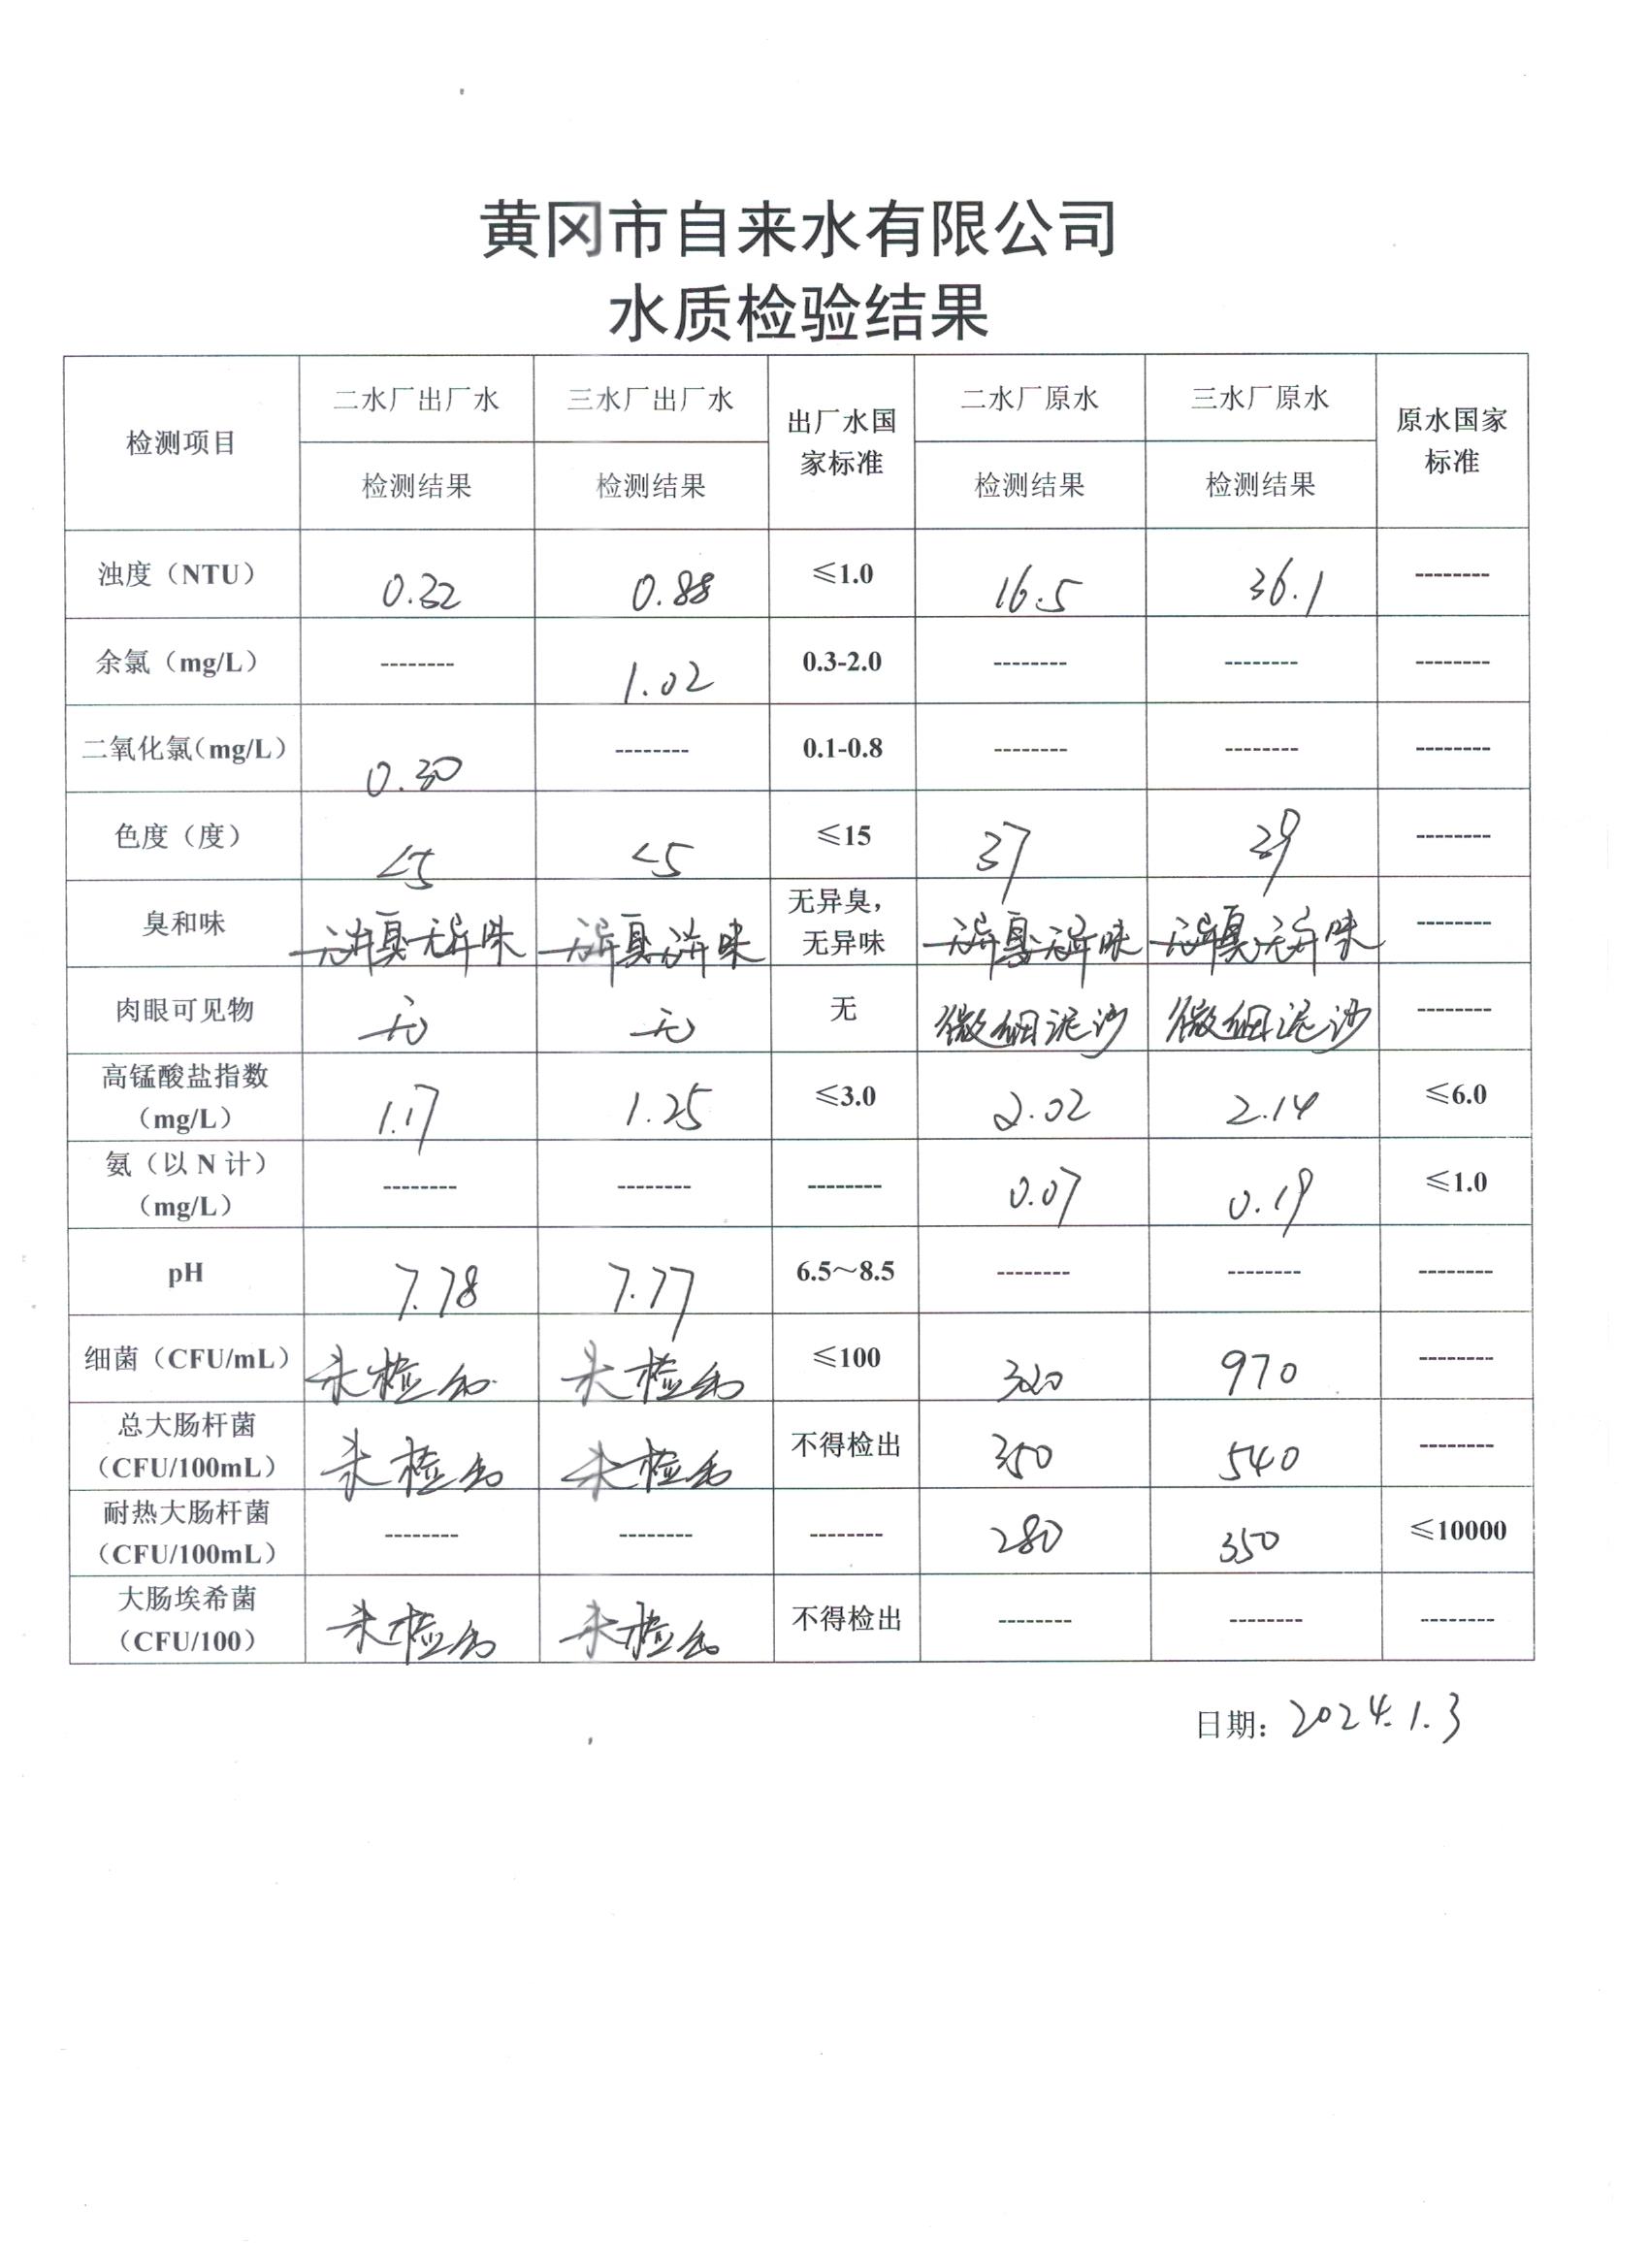 黄冈市自来水有限公司
水质检验结果
检测项目 二水厂出厂水 三水厂出厂水 出厂水国家标准 二水厂原水 三水厂原水 原水国家标准
检测结果 检测结果 检测结果 检测结果
浊度（NTU） 0.32 0.88 ≤1.0 16.5 36.1 --------
余氯（mg/L） -------- 1.02 0.3-2.0 -------- -------- --------
二氧化氯（mg/L） 0.30 -------- 0.1-0.8 -------- -------- --------
色度（度） <5 <5 ≤15 37 39 --------
臭和味 无异臭无异味 无异臭无异味 无异臭，无异味 无异臭无异味 无异臭无异味 --------
肉眼可见物 无 无 无 微细泥沙 微细泥沙 --------
高锰酸盐指数（mg/L） 1.17 1.25 ≤3.0 2.02 2.14 ≤6.0
氨（以N计）（mg/L） -------- -------- -------- 0.07 0.19 ≤1.0
pH 7.78 7.77 6.5～8.5 -------- -------- --------
细菌（CFU/mL） 未检出 未检出 ≤100 320 970 --------
总大肠杆菌（CFU/100mL） 未检出 未检出 不得检出 350 540 --------
耐热大肠杆菌（CFU/100mL） -------- -------- -------- 280 350 ≤10000
大肠埃希菌（CFU/100） 未检出 未检出 不得检出 -------- -------- --------
日期：2024.1.3